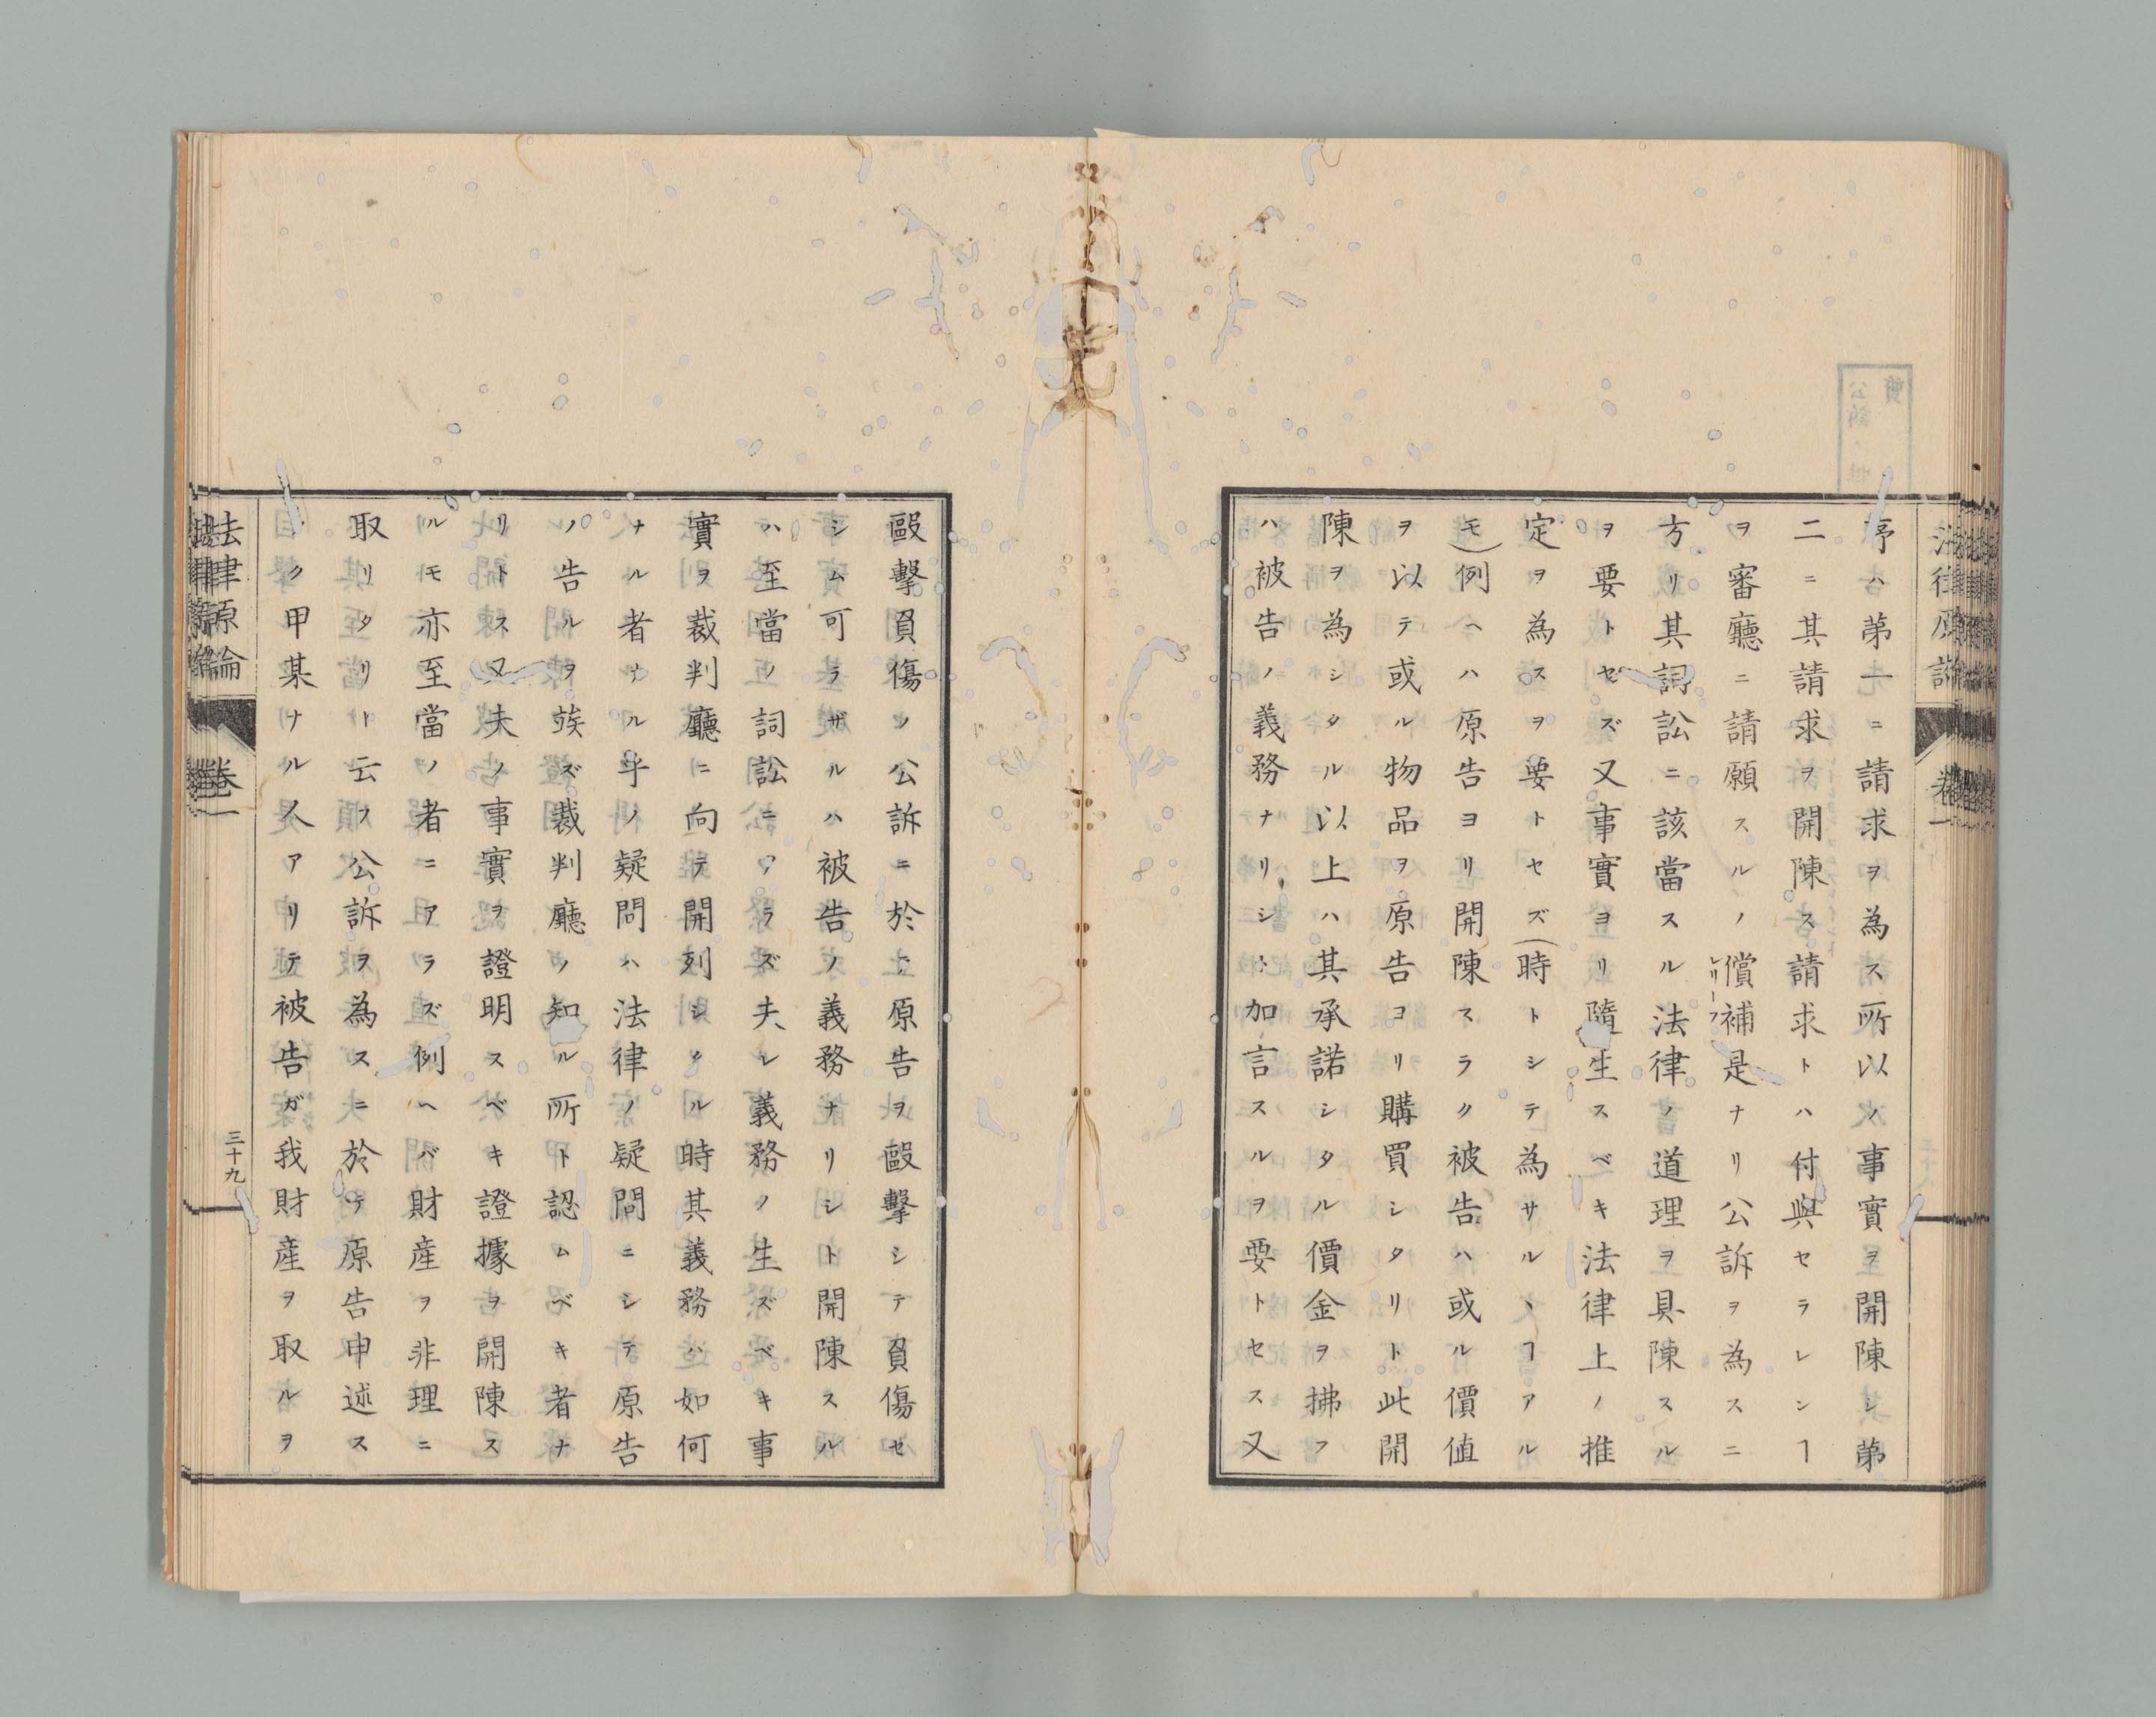 序ハ第一ニ請求ヲ為ス所以ノ事實ヲ開陳シ第
二ニ其請求ヲ開陳ス請求トハ付與セラレンヿ
ヲ審廳ニ請願スルノ償補是ナリ公訴ヲ為スニ
レリーフ
方リ其詞訟ニ該當スル法律ノ道理ヲ具陳スル
ヲ要トセズ又事實ヨリ隨生スベキ法律上ノ推
定ヲ為スヲ要トセズ(時トシテ為サルヽヿアル
モ)例ヘハ原告ヨリ開陳スラク被告ハ或ル價値
ヲ以テ或ル物品ヲ原告ヨリ購買シタリト此開
陳ヲ為シタル以上ハ其承諾シタル價金ヲ拂フ
ハ被告ノ義務ナリシト加言スルヲ要トセス又
毆擊負傷ノ公訴ニ於テ原告ヲ毆擊シテ負傷セ
シム可ラザルハ被告ノ義務ナリシト開陳スル
ハ至當ノ詞訟ニアラズ夫レ義務ノ生ズベキ事
實ヲ裁判廳ニ向テ開列シタル時其義務ハ如何
ナル者ナル乎ノ疑問ハ法律ノ疑問ニシテ原告
ノ告ルヲ竢ズ裁判廳ノ知ル所ト認ムベキ者ナ
リトス又夫ノ事實ヲ證明スベキ證據ヲ開陳ス
ルモ亦至當ノ者ニアラズ例ヘバ財産ヲ非理ニ
取リタリト云フ公訴ヲ為スニ於テ原告申述ス
ラク甲某ナル人アリテ被告ガ我財産ヲ取ルヲ
法律原論
卷一
三十九